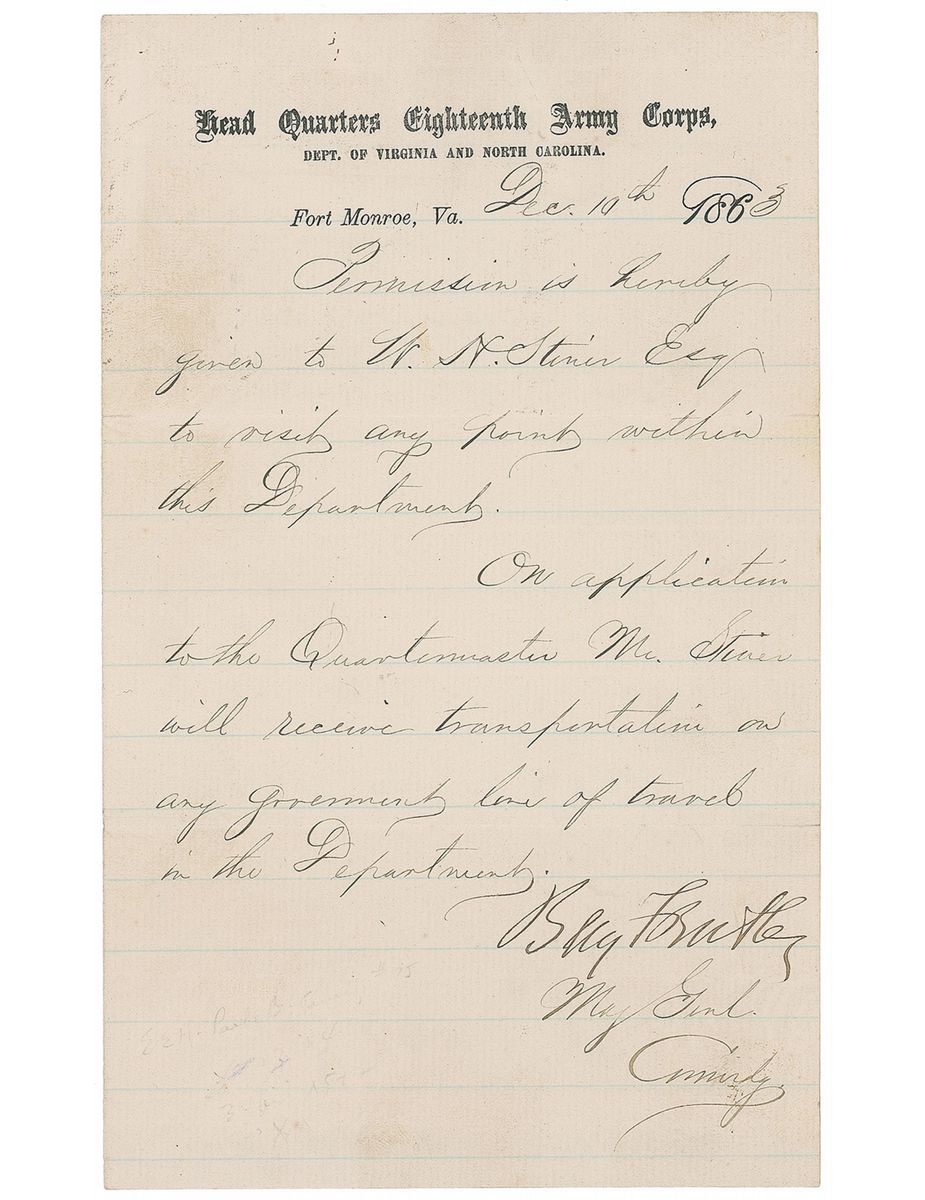 Head Quarters Eighteenth Army Corps,
DEPT. OF VIRGINIA AND NORTH CAROLINA.
Fort Monroe, Va. Dec. 19th 1863
Permission is hereby
given to W. H. Stiner Esq
to visit any point within
this Department.
On application
to the Quartermaster Mr. Stiner
will receive transportation on
any goverment line of travel
in the Department.
Benj F Butler
Maj Genl.
Comndg.